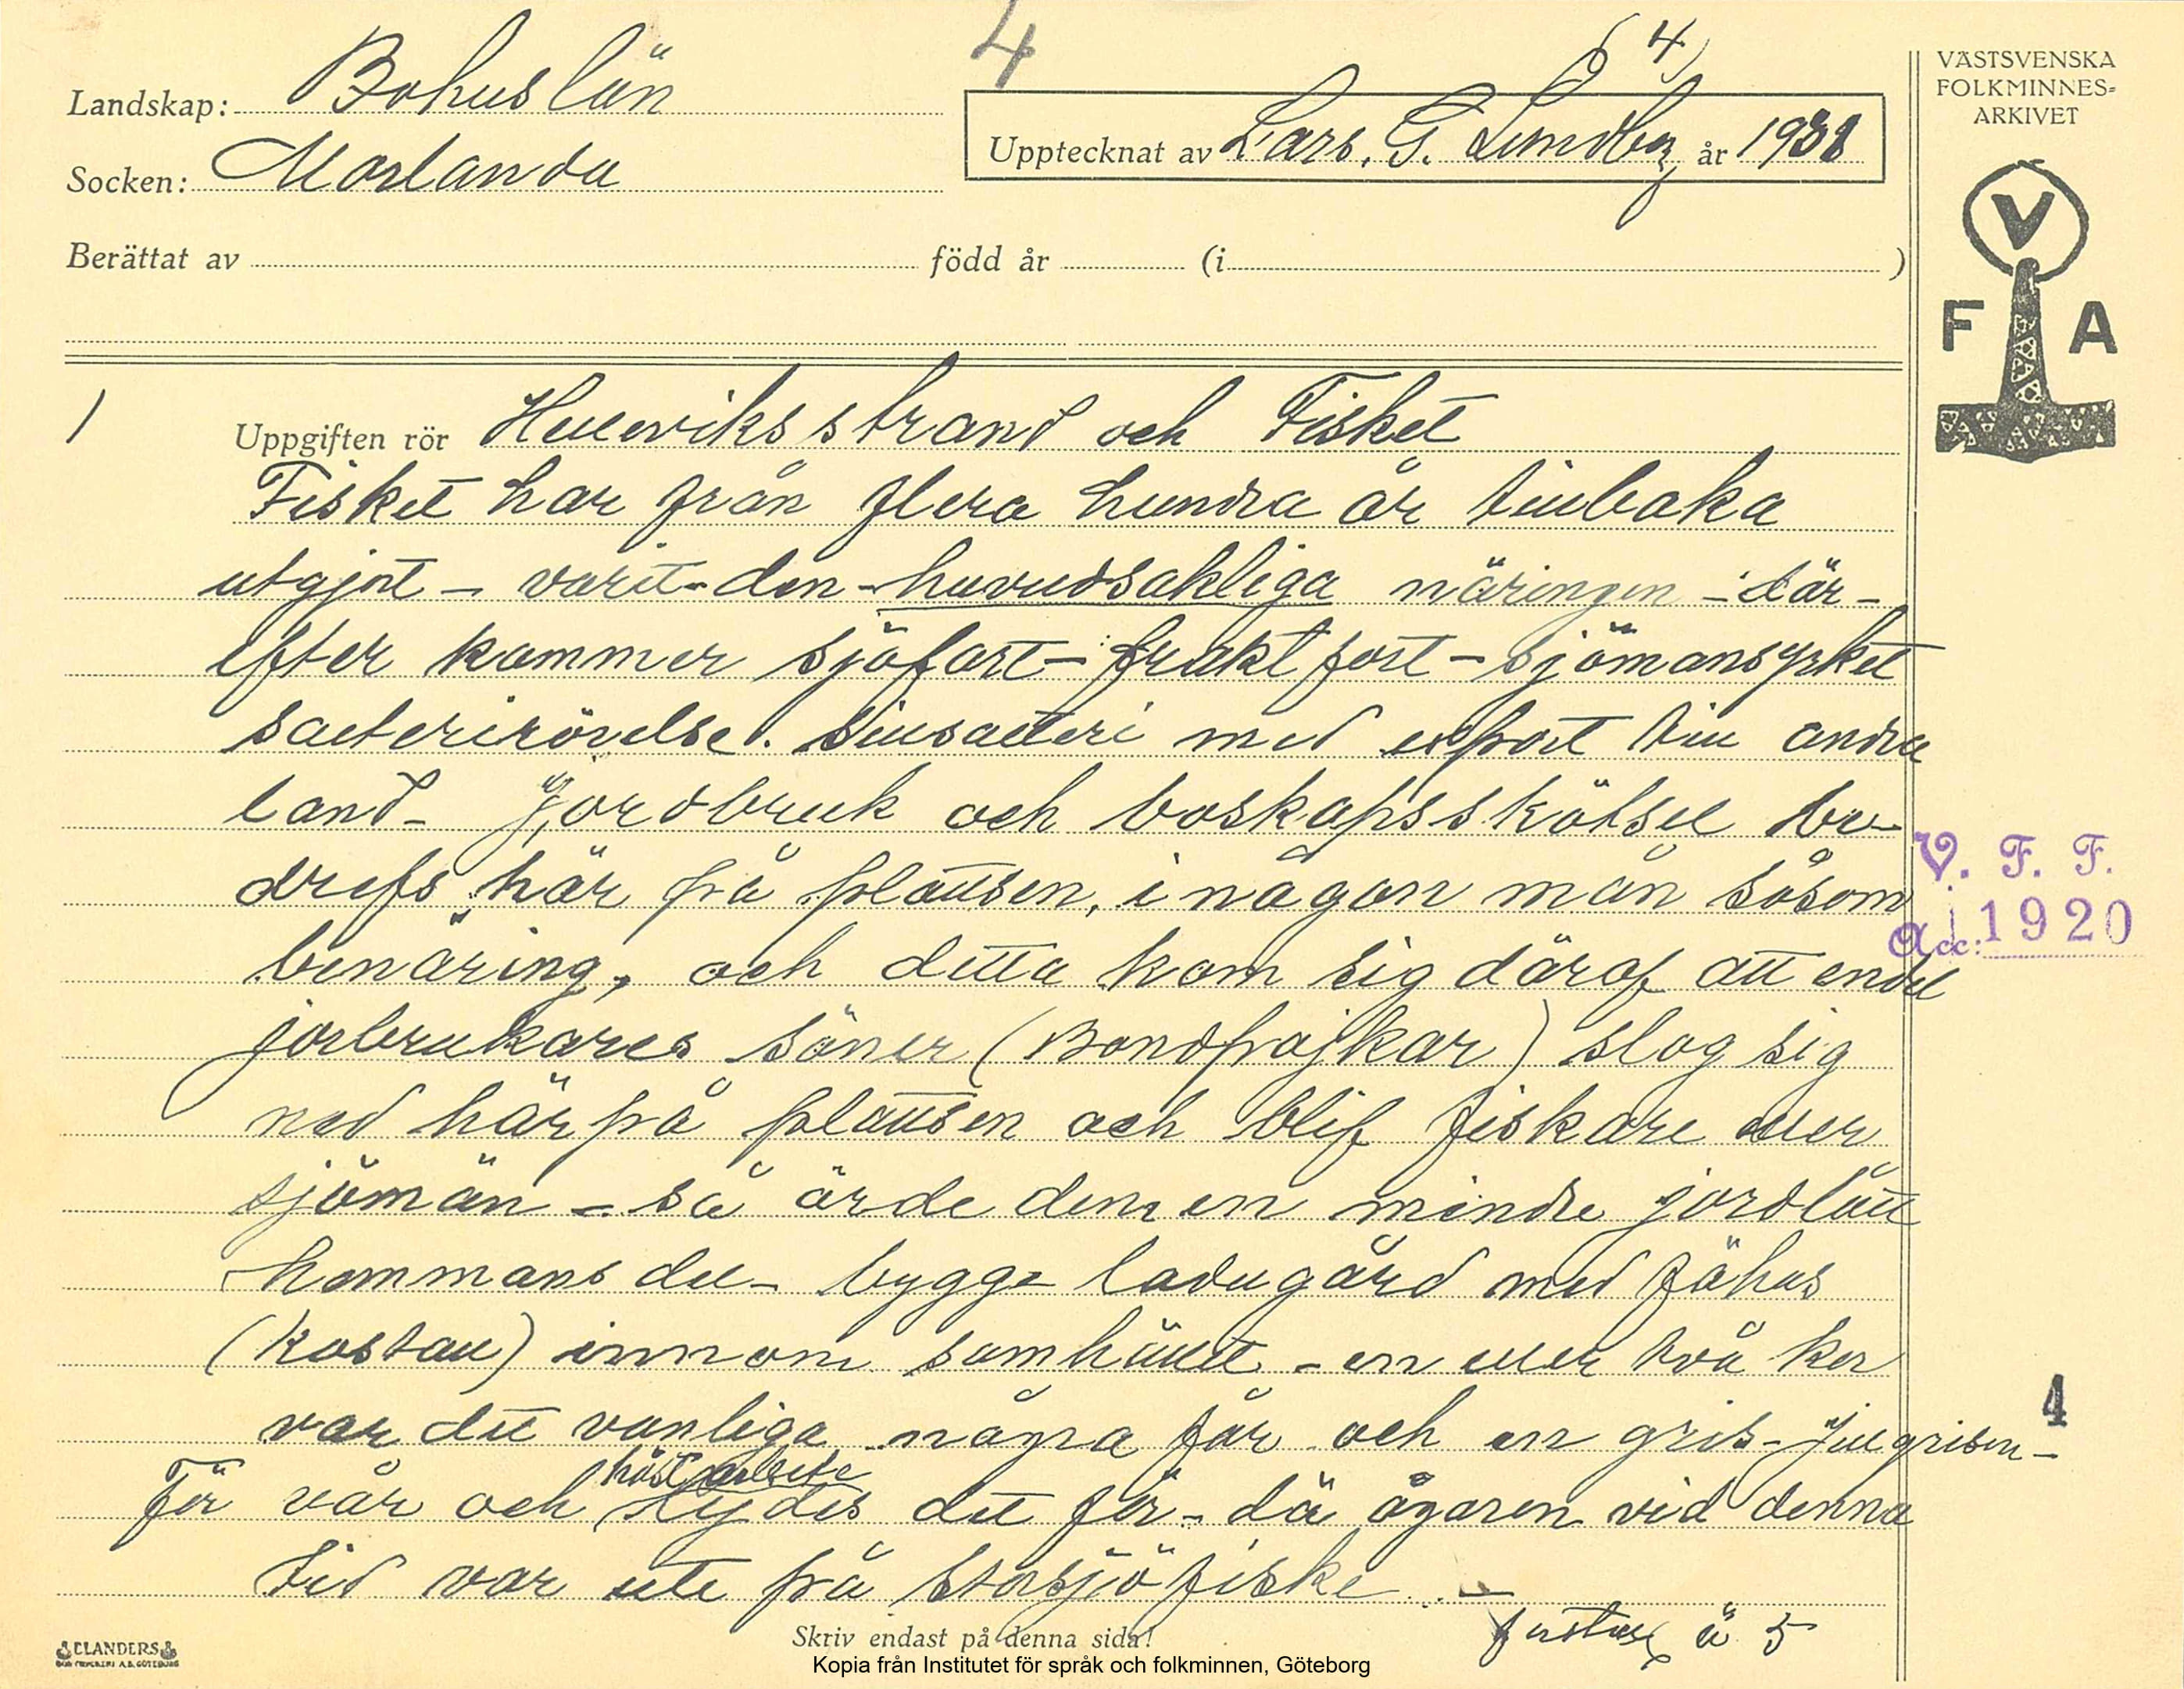 4
4)
Landskap: Bohuslän
Socken: Morlanda
Upptecknat av Lars. G. Lundberg år 1931
VÄSTSVENSKA
FOLKMINNES-
ARKIVET
V
F A
Berättat av född år (i )
1
Uppgiften rör Hälleviksstrand och Fisket
Fisket har från flera hundra år tillbaka
utgjort – varit – den – huvudsakliga näringen – där-
efter kommer sjöfart – fraktfort – sjömansyrket
salterirörelse. sillsalteri med export till andra
land – Jordbruk och boskapsskötsel be-
drefs här på plattsen, i någon mån såsom
benäring, och detta kom sig däraf att endel
jorbrukares söner (Bondpojkar) slog sig
ned här på plattsen och blif fiskare eller
sjömän – så ärde dem en mindre jordlått
hemmans del – bygge ladugård med fähus
(kostall) innom samhället – en eller två kor
var det vanliga några får och en gris – julgrisen –
höstarbete
För vår och lejdes det för – då ägaren vid denna
tid var ute på storsjöfiske –
V. F. F.
Acc: 1920
4
Skriv endast på denna sida!
å 5
ELANDERS
Kopia från Institutet för språk och folkminnen, Göteborg